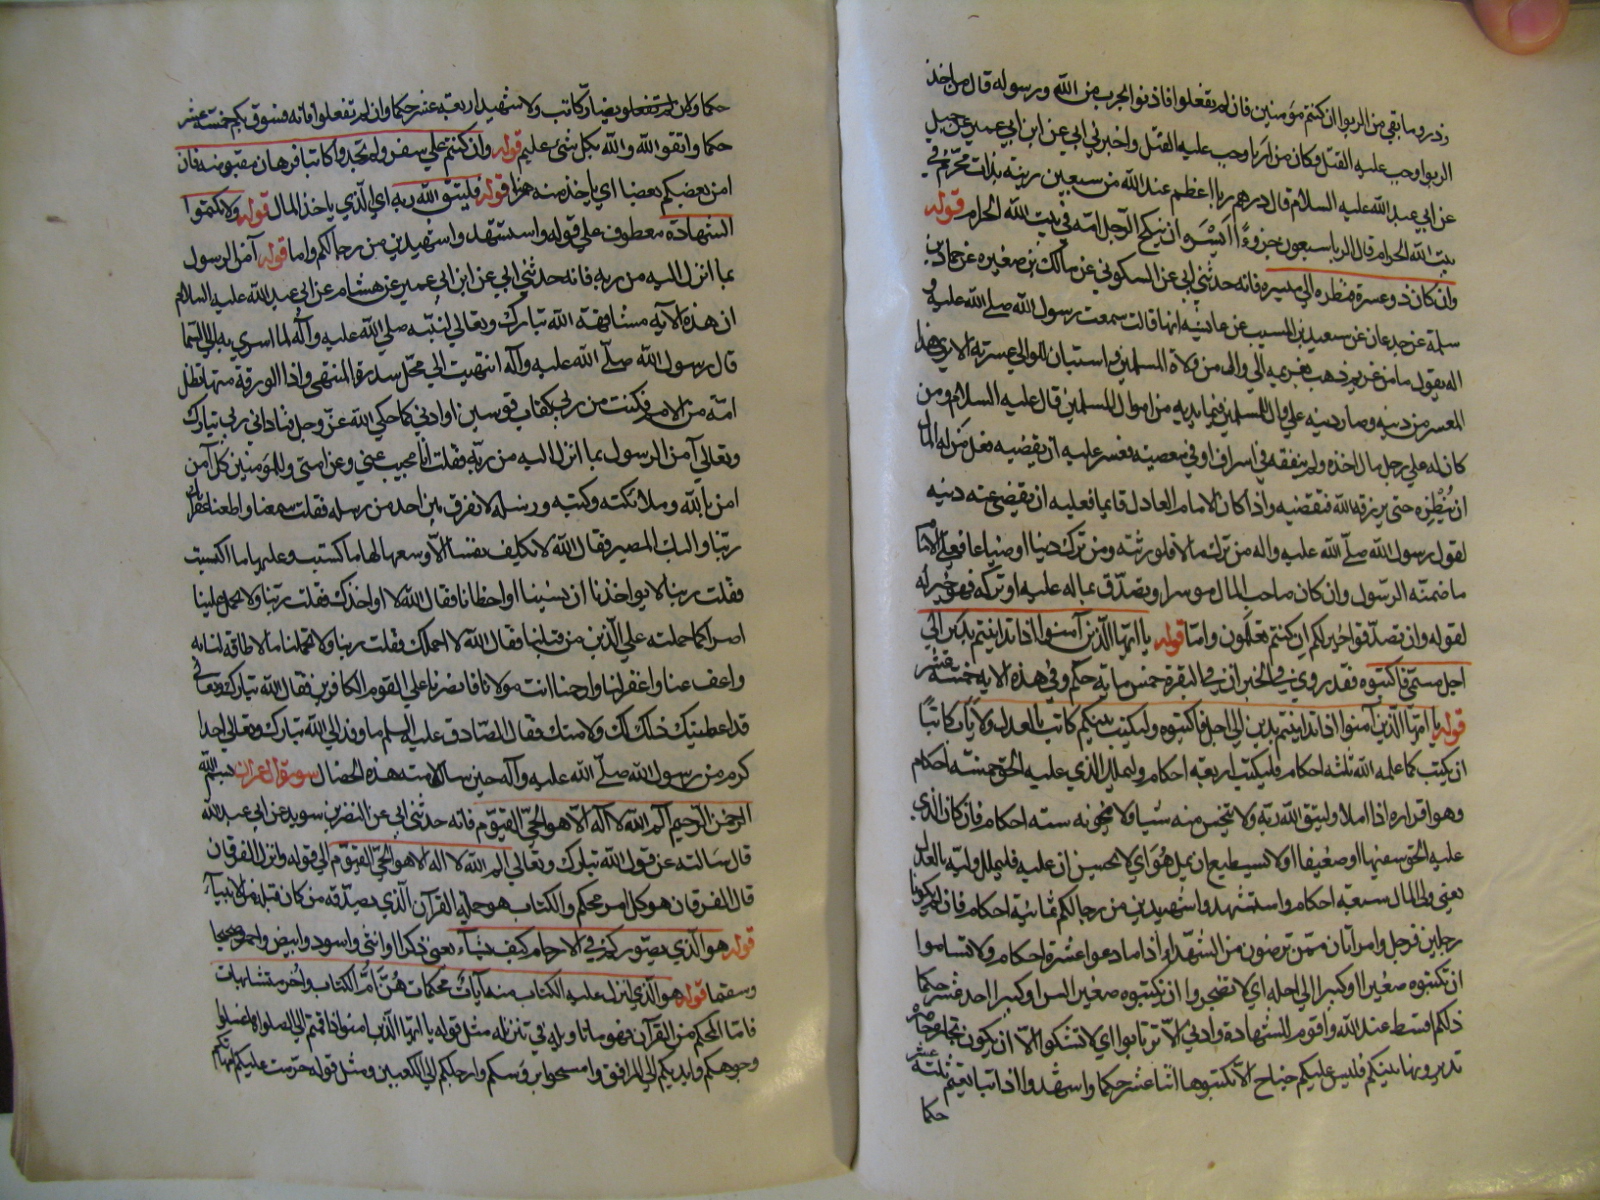 وذروا ما بقي من الربوا ان كنتم مؤمنين فان لم تفعلوا فاذنوا بحرب من الله ورسوله قال من اخذ
الربوا وجب عليه القتل وكان من اربا وجب عليه القتل واخبرني ابي عن ابن ابي عمير عن جميل
عن ابي عبد الله عليه السلام قال درهم ربا اعظم عند الله من سبعين زنية بذات محرم في
بيت الله الحرام قال الربا سبعون جزوءا ايسره ان ينكح الرجل امه في بيت الله الحرام قوله
وان كان ذو عسرة فنظرة الي ميسره فانه حدثني ابي عن السكوني عن مالك بن مغيره عن حماد بن
سلمة عن جدعان عن سعيد بن المسيب عن عائشه انها قالت سمعت رسول الله صلي الله عليه و
اله يقول ما من غريم ذهب بغريمه الي والي من ولاة المسلمين واستبان للوالي عسرته الا بري هذا
المعسر من دينه وصار دينه علي والي المسلمين فيما يديه من اموال المسلمين قال عليه السلام ومن
كان له علي رجل مال اخذه ولم ينفقه في اسراف او في معصية فعسر عليه ان يقضيه فعلي من له المال
ان ينظره حتي يرزقه الله فيقضيه واذا كان الامام العادل قايما فعليه ان يقضي عنه دينه
لقول رسول الله صلي الله عليه واله من ترك مالا فلورثته ومن ترك دينا او ضياعا فعلي الامام
ما ضمنه الرسول وان كان صاحب المال موسرا وتصدق بماله عليه او تركه فهو خير له
لقوله وان تصدقوا خير لكم ان كنتم تعلمون واما قوله يا ايها الذين آمنوا اذا تداينتم بدين الي
اجل مسمي فاكتبوه فقد روي في الخبر ان في البقرة خمس مايه حكم وفي هذه الايه خمسة عشر
قوله يا ايها الذين آمنوا اذا تداينتم بدين الي اجل فاكتبوه وليكتب بينكم كاتب بالعدل ولا ياب كاتبا
ان يكتب كما علمه الله ثلثه احكام فليكتب اربعة احكام وليملل الذي عليه الحق خمسة احكام
وهو اقراره اذا املا وليتق الله ربه ولا يبخس منه شيا ولا يخونه سته احكام فان كان الذي
عليه الحق سفيها او ضعيفا او لا يستطيع ان يمل هو اي لا يحسن ان عليه فليملل وليه بالعدل
يعني ولي المال سبعة احكام واستشهدوا شهيدين من رجالكم ثمانية احكام فان لم يكونا
رجلين فرجل وامراتان ممن ترضون من الشهداء اذا ما دعوا عشرة احكام ولا تساموا
ان تكتبوه صغيرا او كبيرا الي اجله اي لا تضجروا ان تكتبوه صغير السن او كبيرا احد عشر حكما
ذلكم اقسط عند الله واقوم للشهادة وادني الا ترتابوا اي لا تشكوا الا ان يكون تجارة حاضرة
تديرونها بينكم فليس عليكم جناح الا تكتبوها اثنا عشر حكما واشهدوا اذا تبايعتم ثلثة عشر
حكما
حكما ولا يضار كاتب ولا شهيد اربعة عشر حكما وان لم تفعلوا فانه فسوق بكم خمسة عشر
حكما واتقوا الله والله بكل شي عليم قوله وان كنتم علي سفر ولم تجدوا كاتبا فرهان مقبوضه فان
امن بعضكم بعضا اي ياخذ منه هزا قوله فليتق الله ربه اي الذي ياخذ المال قوله ولا تكتموا
الشهادة معطوف علي قوله واستشهدوا شهيدين من رجالكم واما قوله آمن الرسول
بما انزل اليه من ربه فانه حدثني ابي عن ابن ابي عمير عن هشام عن ابي عبد الله عليه السلام
ان هذه الايه مشافهة الله تبارك وتعالي لنبيه صلي الله عليه وآله لما اسري به الي السما
قال رسول الله صلي الله عليه وآله انتهيت الي محل سدرة المنتهي واذا الورقة منها تظل
امة من الامم فكنت من ربي كقاب قوسين او ادني كما حكي الله عز وجل فناداني ربي تبارك
وتعالي آمن الرسول بما انزل اليه من ربه فقلت انا مجيب عني وعن امتي والمومنين كل آمن
امن بالله وملائكته وكتبه ورسله لا نفرق بين احد من رسله فقلت سمعنا واطعنا غفرانك
ربنا واليك المصير فقال الله لا يكلف نفسا الا وسعها لها ما كسبت وعليها ما اكتسبت
فقلت ربنا لا تواخذنا ان نسينا او اخطانا فقال الله لا اواخذك فقلت ربنا ولا تحمل علينا
اصرا كما حملته علي الذين من قبلنا فقال الله لا احملك فقلت ربنا ولا تحملنا ما لا طاقة لنا به
واعف عنا واغفر لنا وارحمنا انت مولانا فانصرنا علي القوم الكافرين فقال الله تبارك وتعالي
قد اعطيتك ذلك لك ولامتك فقال الصادق عليه السلم ما وفد الي الله تبارك وتعالي احد
كرم من رسول الله صلي الله عليه وآله حين سال لامته هذه الخصال سورة ال عمران بسم الله
الرحمن الرحيم الم الله لا اله الا هو الحي القيوم فانه حدثني ابي عن النضر بن سويد عن ابي عبد الله
قال سالته عن قول الله تبارك وتعالي الم الله لا اله الا هو الحي القيوم الي قوله وانزل الفرقان
قال الفرقان هو كل امر محكم والكتاب هو جملة القرآن الذي يصدقه من كان قبله من الانبيآء
قوله هو الذي يصوركم في الارحام كيف يشآء يعني ذكرا او انثي واسود وابيض واحمر وصحيحا
وسقيما قوله هو الذي انزل عليه الكتاب منه آيات محكمات هن ام الكتاب واخر متشابهات
فاما المحكم من القرآن فهو ما تاويله في تنزيله مثل قوله يا ايها الذين امنوا اذا قمتم الي الصلوة فاغسلوا
وجوهكم وايديكم الي المرافق وامسحوا بروسكم وارجلكم الي الكعبين ومثل قوله حرمت عليكم امهاتكم